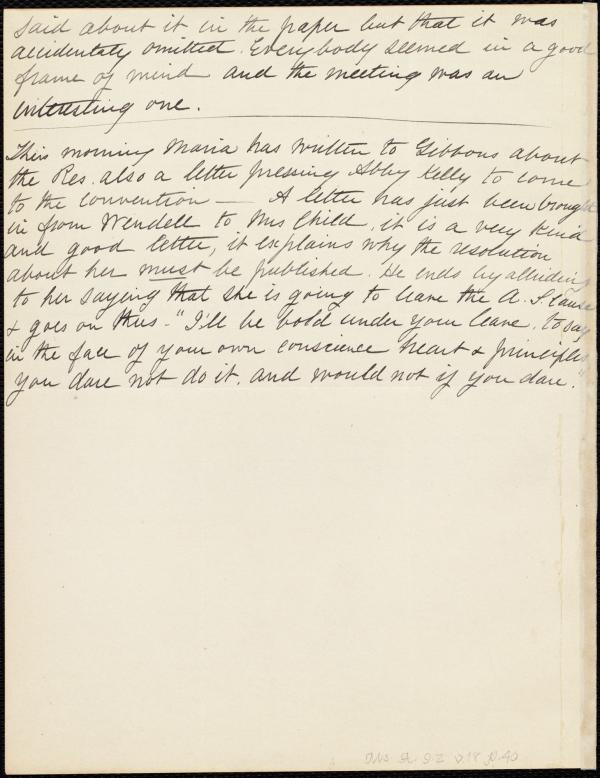 said about it in the paper but that it was
accidentaly omitted. Everybody seemed in a good
frame of mind and the meeting was an
interesting one.
This morning Maria has written to Gibbons about
the Res. also a letter pressing Abby Kelly to come
to the convention — A letter has just been brought
in from Wendell to Mrs Child, it is a very kind
and good letter, it explains why the resolution
about her must be published. He ends by alluding
to her saying that she is going to leave the A. S. Cause
& goes on thus - "I'll be bold under your leave, to say
in the face of your own conscience heart & principles
you dare not do it, and would not if you dare."